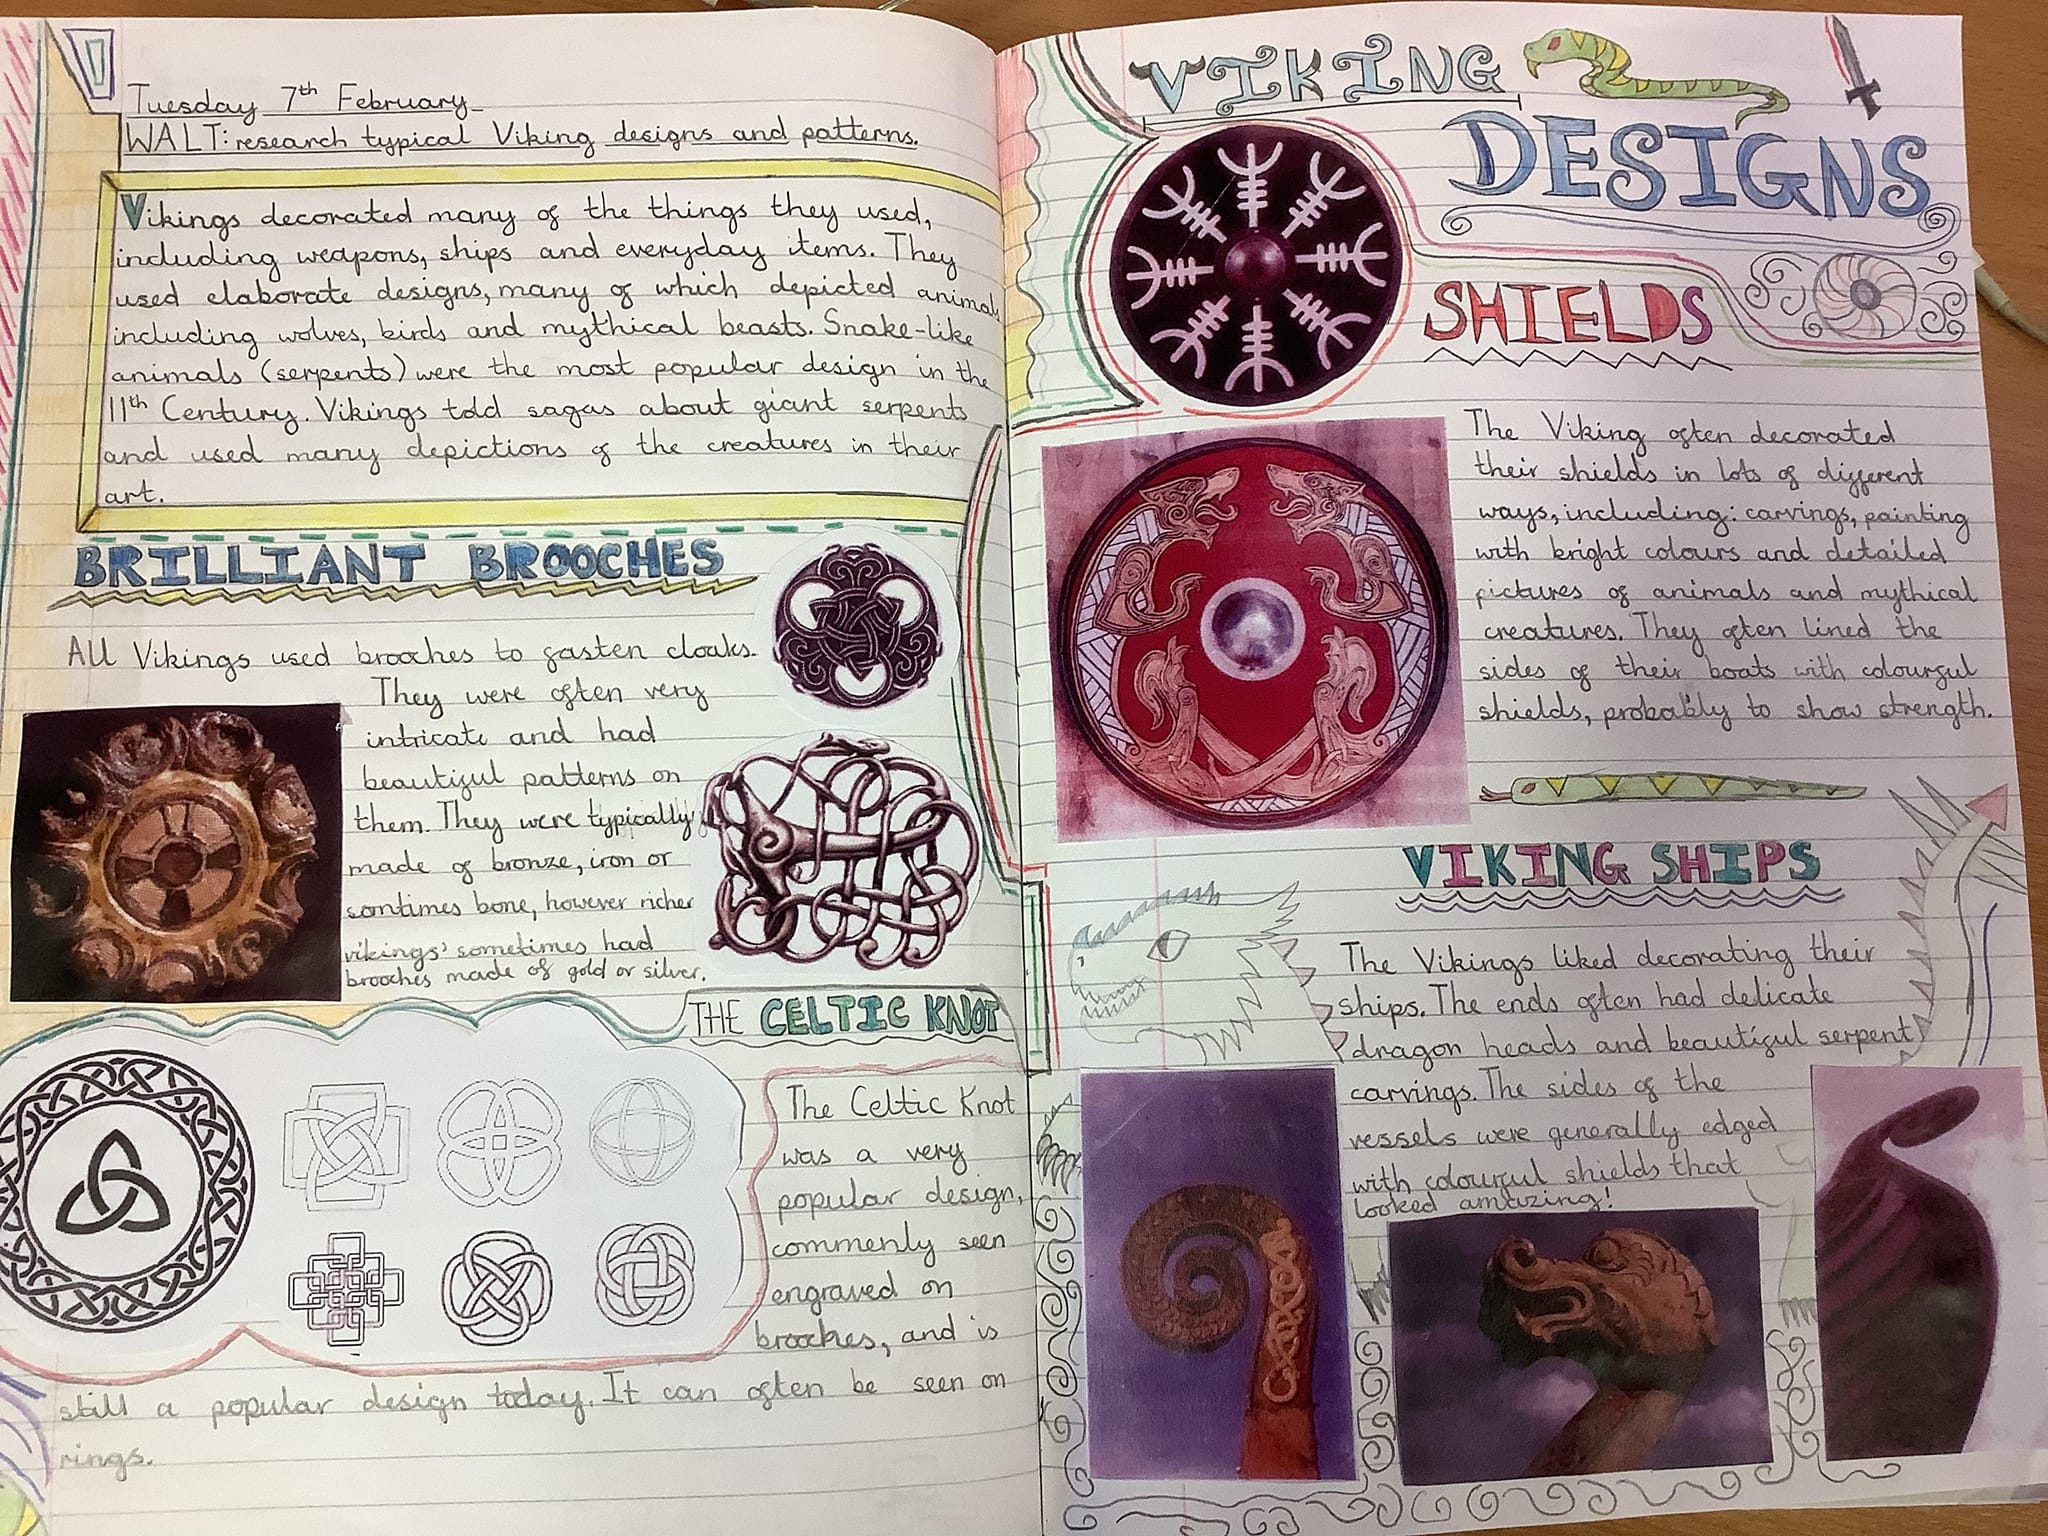 Tuesday 7th February
WALT: research typical Viking designs and patterns.
Vikings decorated many of the things they used,
including weapons, ships and everyday items. They
used elaborate designs, many of which depicted animals
including wolves, birds and mythical beasts. Snake-like
animals (serpents) were the most popular design in the
11th Century. Vikings told sagas about giant serpents
and used many depictions of the creatures in their
art.
BRILLIANT BROOCHES
All Vikings used brooches to fasten cloaks.
They were often very
intricate and had
beautiful patterns on
them. They were typically
made of bronze, iron or
somtimes bone, however richer
vikings' sometimes had
brooches made of gold or silver.
THE CELTIC KNOT
The Celtic Knot
was a very
popular design,
commenly seen
engraved on
brooches, and is
still a popular design today. It can often be seen on
rings.
VIKING
DESIGNS
SHIELDS
The Viking often decorated
their shields in lots of different
ways, including: carvings, painting
with bright colours and detailed
pictures of animals and mythical
creatures. They often lined the
sides of their boats with colourful
shields, probably to show strength.
VIKING SHIPS
The Vikings liked decorating their
ships. The ends often had delicate
dragon heads and beautiful serpent
carvings. The sides of the
vessels were generally edged
with colourful shields that
looked amazing!